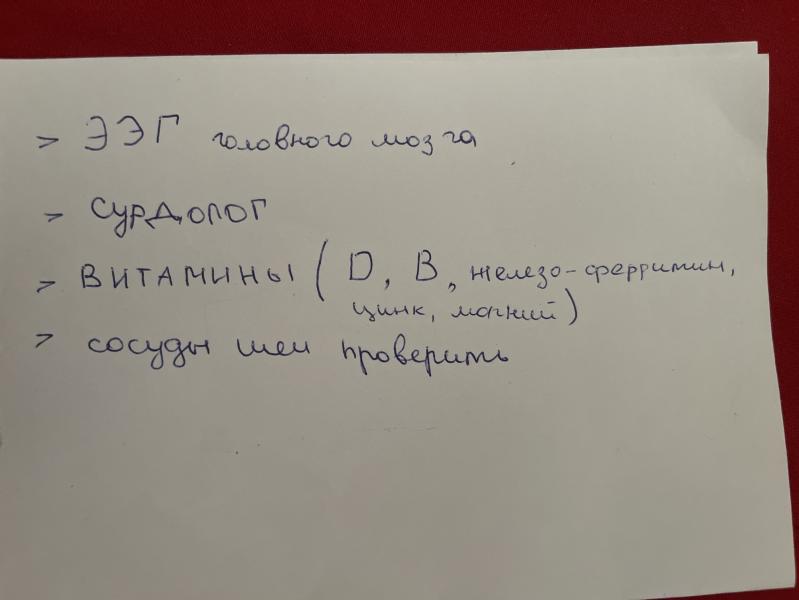 > ЭЭГ головного мозга
> СУРДОЛОГ
> ВИТАМИНЫ (D, B, железо-ферритин,
цинк, магний)
> сосуды шеи проверить